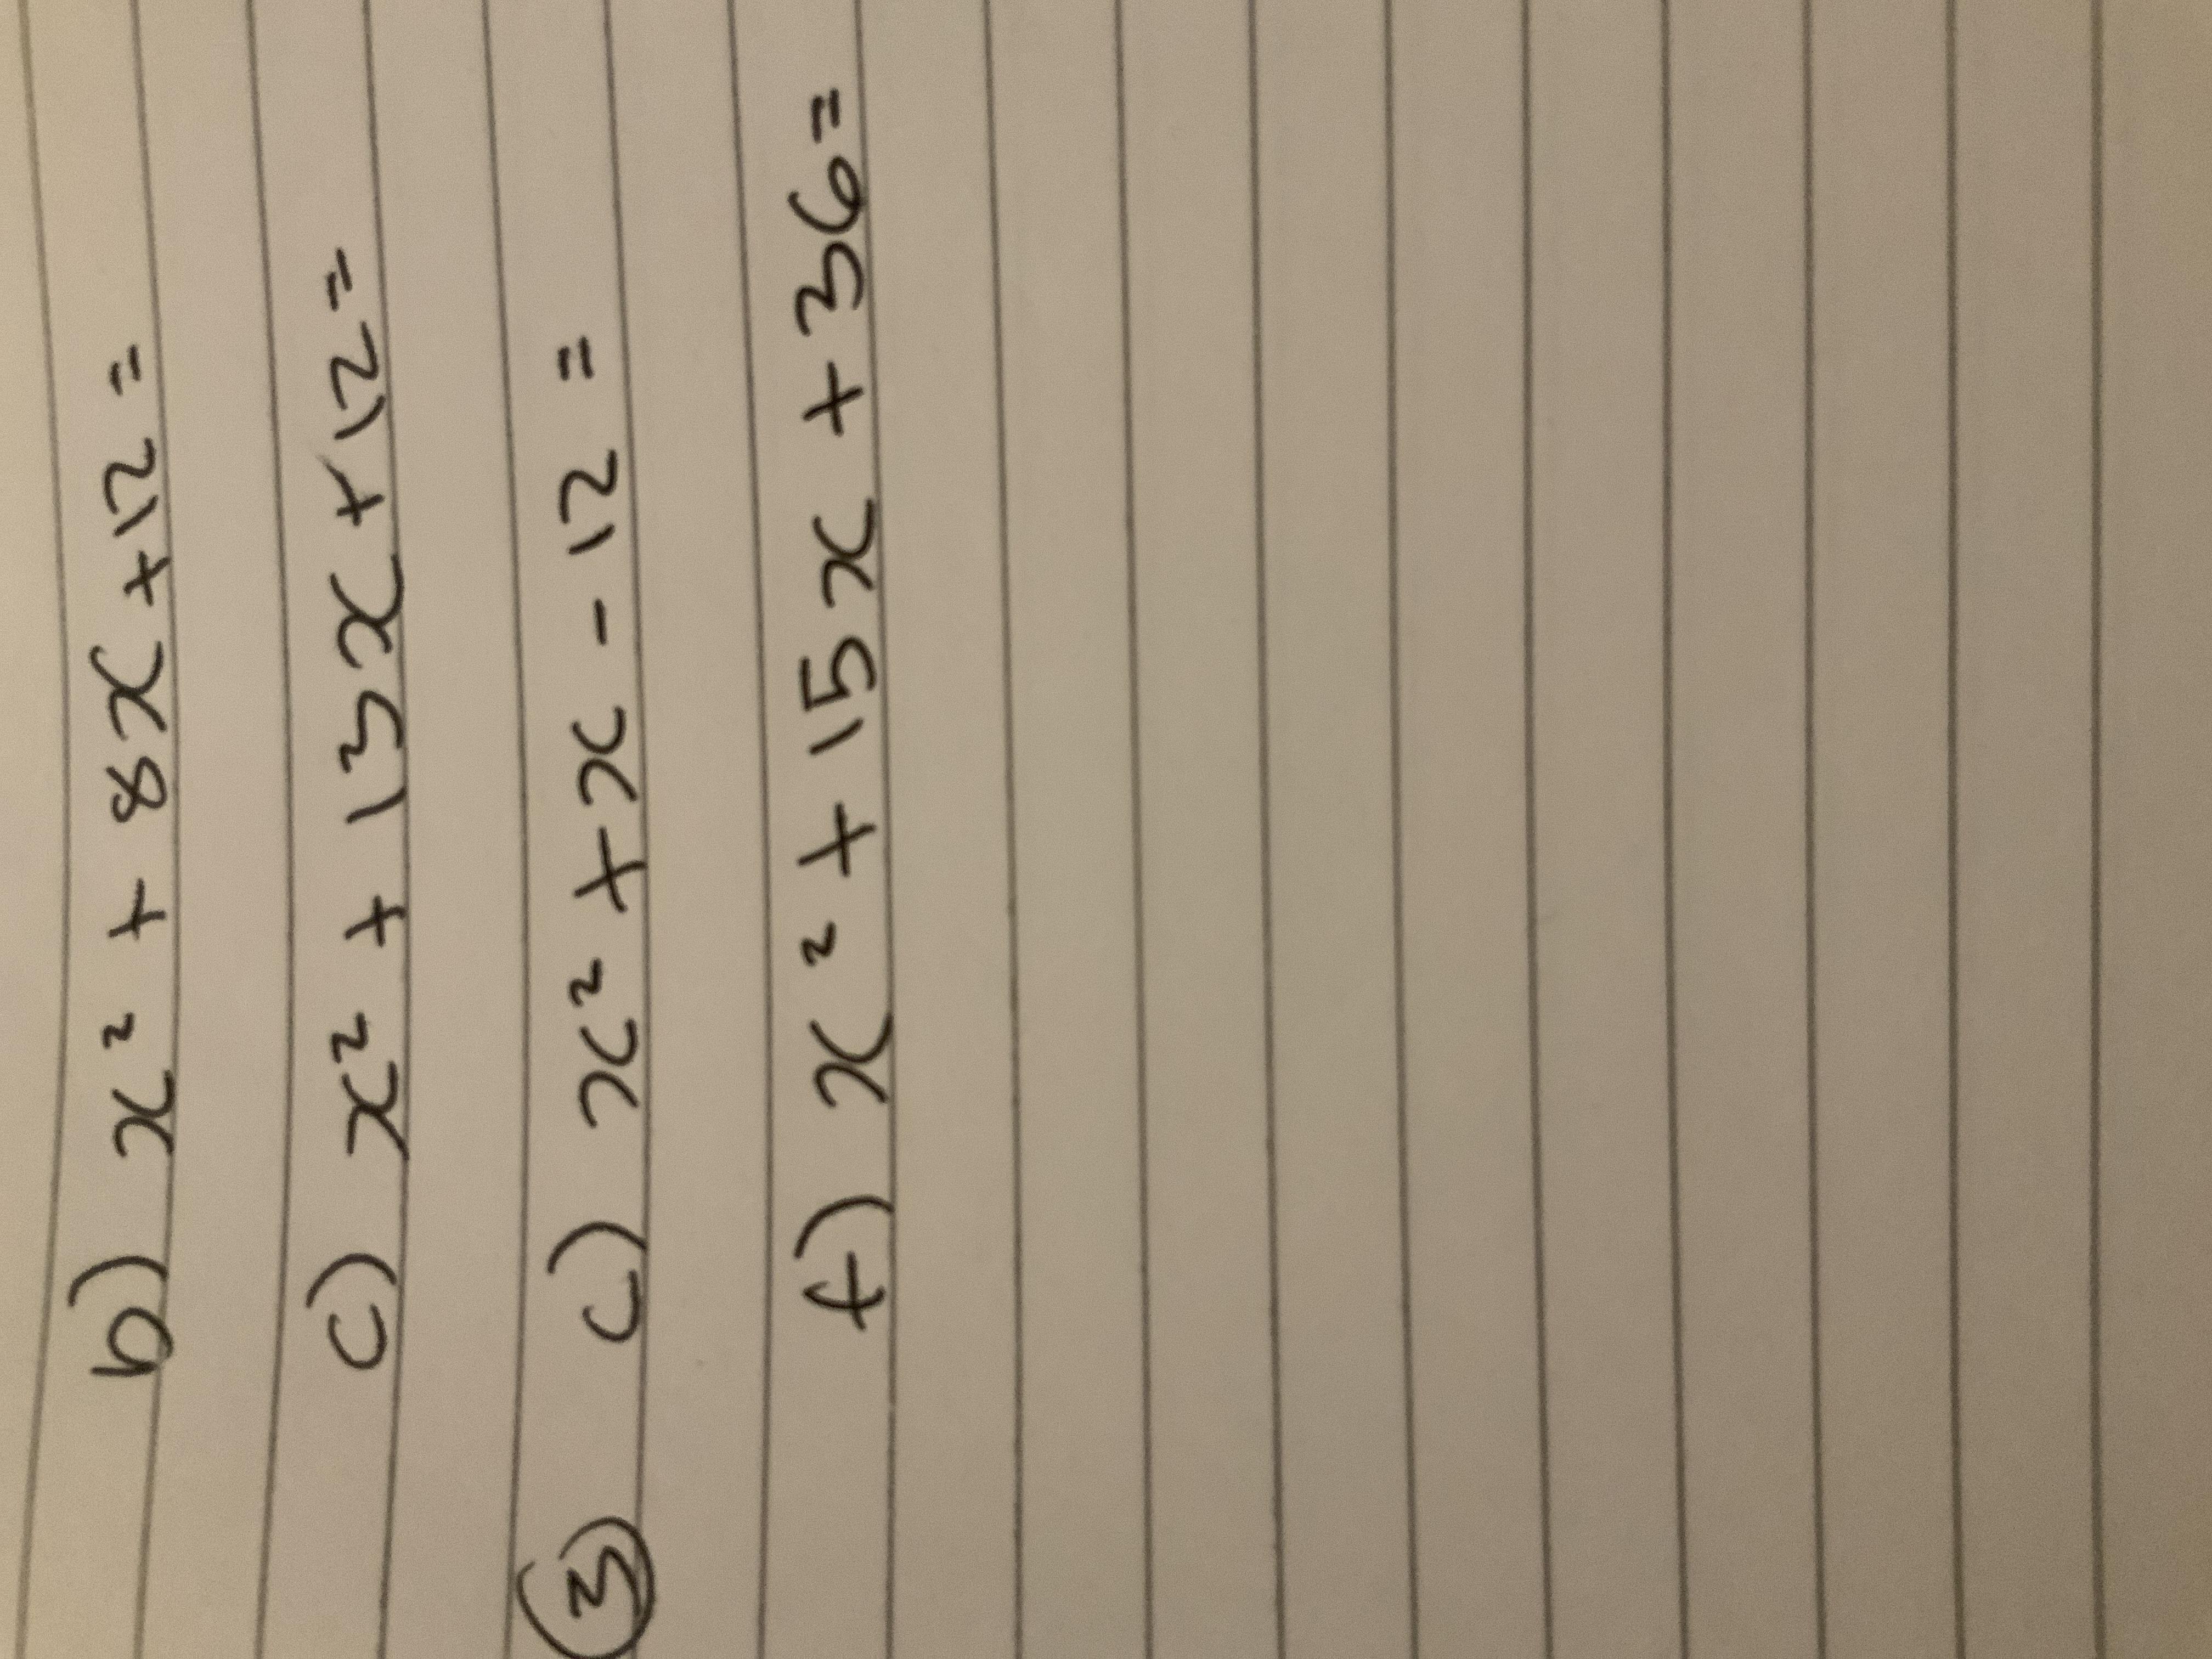 b) x² + 8x + 12 =
c) x² + 13x + 12 =
③ c) x² + x - 12 =
f) x² + 15x + 36 =